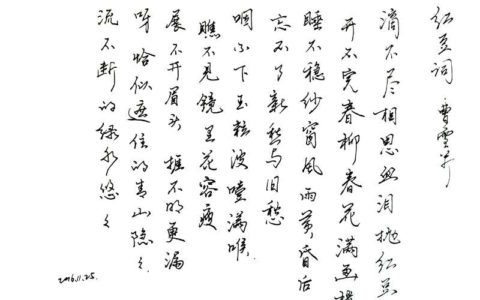 红豆词 曹雪芹
滴不尽相思血泪抛红豆
开不完春柳春花满画楼
睡不稳纱窗风雨黄昏后
忘不了新愁与旧愁
咽不下玉粒波噎满喉
瞧不见镜里花容瘦
展不开眉头 捱不明更漏
呀恰似遮住的青山隐々
流不断的绿水悠々
2016.11.25.